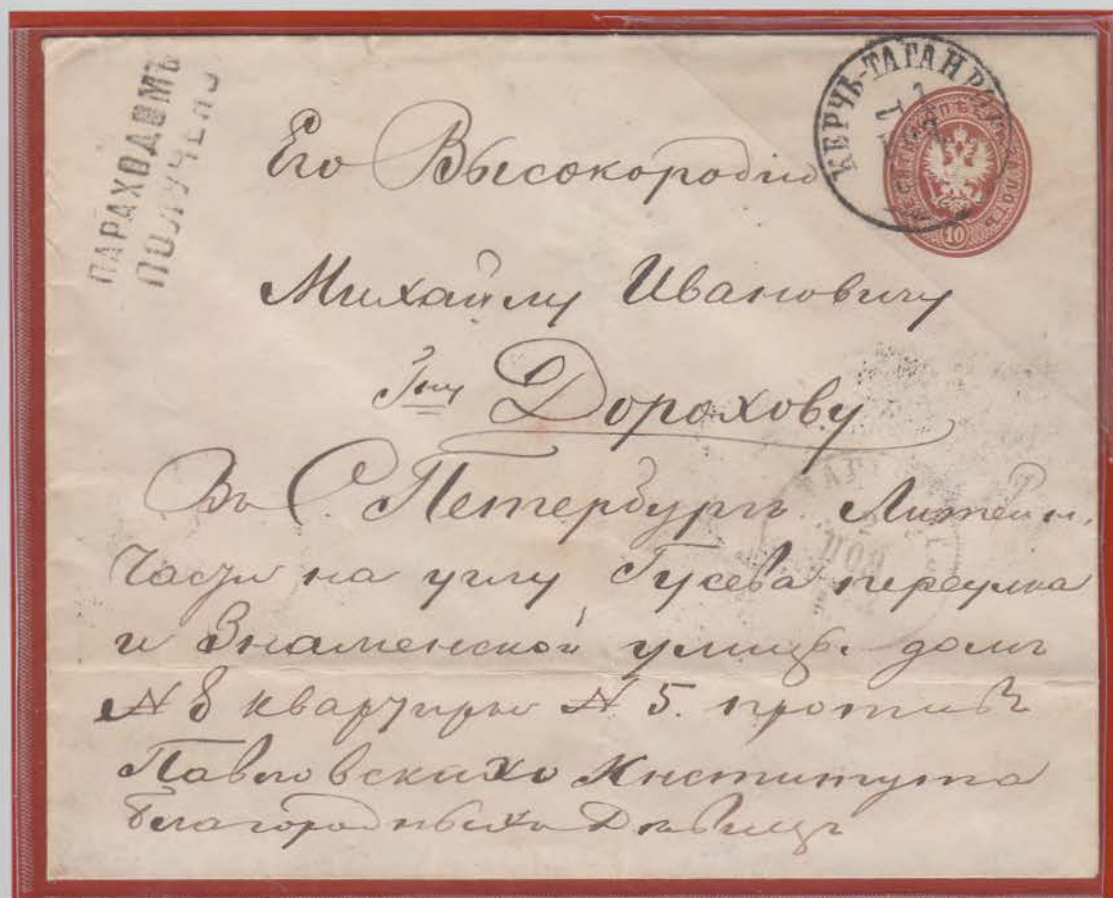 ПАРАХОДОМЪ
ПОЛУЧЕНО
КЕРЧЬ-ТАГАНР
10
Его Высокородію
Михайлу Ивановичу
Гну Дорохову
Въ С. Петербургъ Литейн.
Части на углу Гусева переулка
и Знаменской улицъ. домъ
№ 8 квартиры № 5. противъ
Павловскихо Института
благородныхо Дѣвицъ